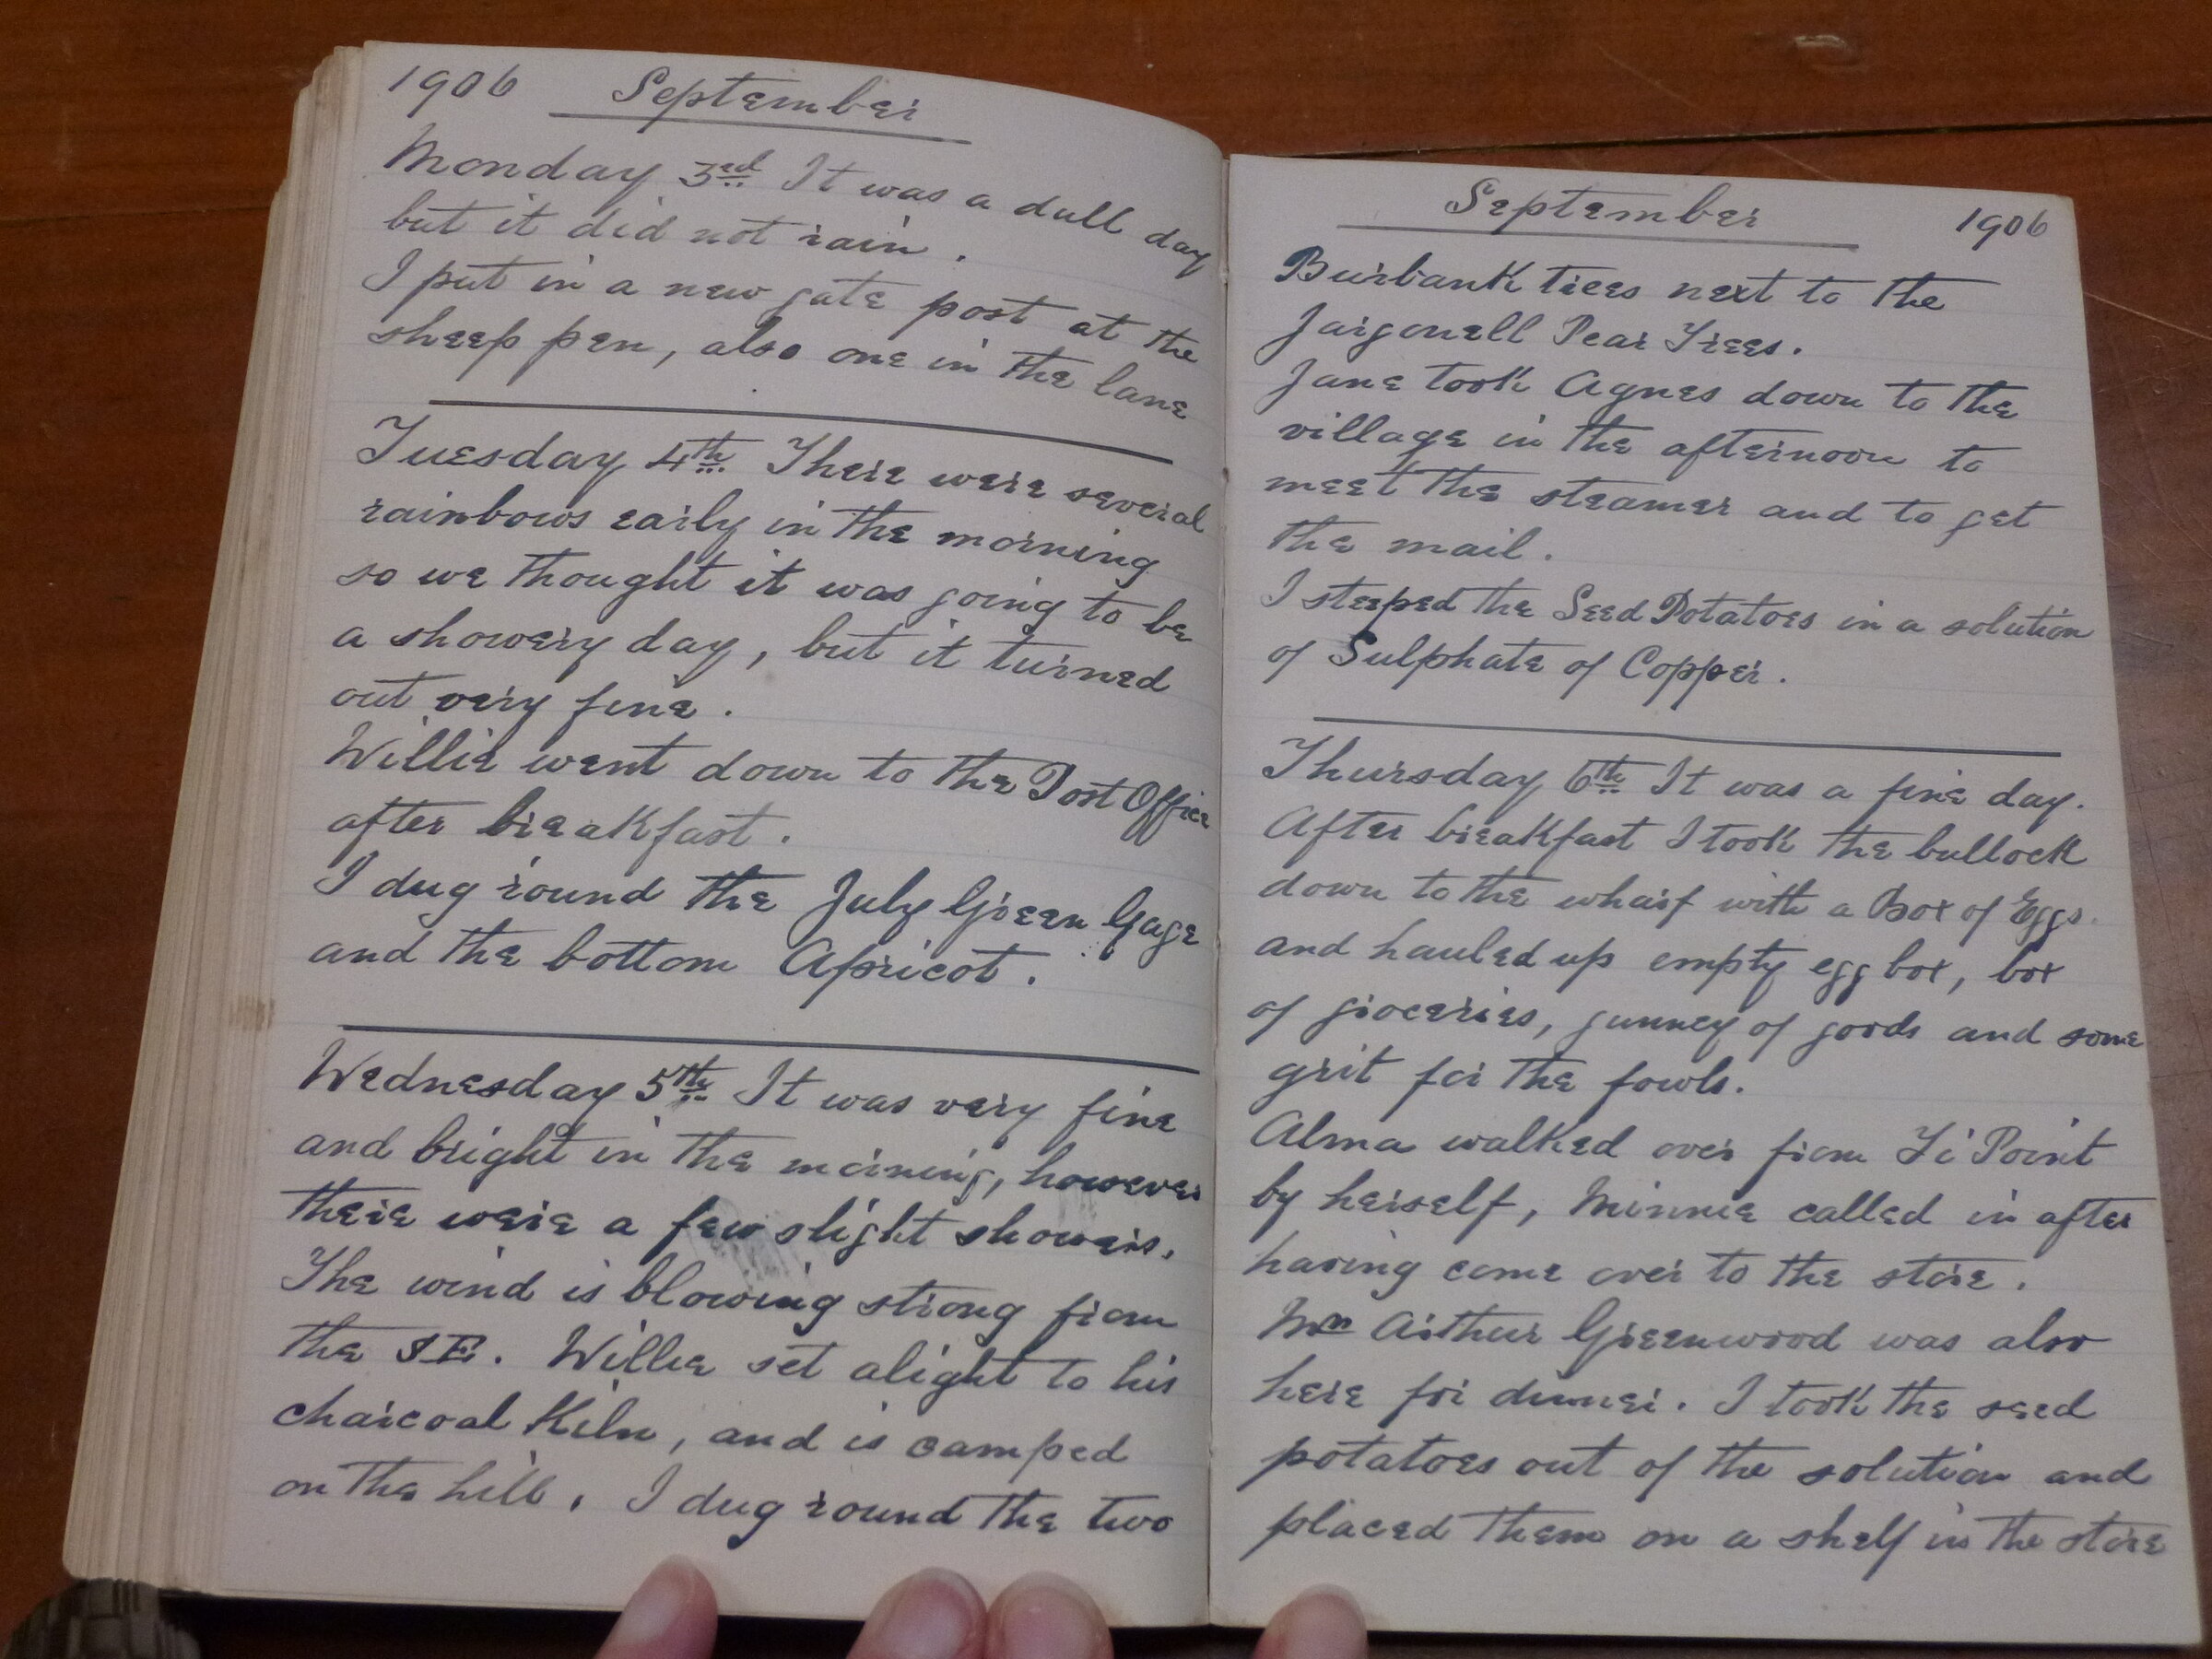 1906 September
Monday 3rd It was a dull day
but it did not rain.
I put in a new gate post at the
sheep pen, also one in the lane
Tuesday 4th There were several
rainbows early in the morning
so we thought it was going to be
a showery day, but it turned
out very fine.
Willie went down to the Post Office
after breakfast.
I dug round the July Green Gage
and the bottom Apricot.
Wednesday 5th It was very fine
and bright in the morning, however
there were a few slight showers.
The wind is blowing strong from
the SE. Willie set alight to his
charcoal Kiln, and is camped
on the hill. I dug round the two
September 1906
Burbank trees next to the
Jargonell Pear Trees.
Jane took Agnes down to the
village in the afternoon to
meet the steamer and to get
the mail.
I steeped the Seed Potatoes in a solution
of Sulphate of Copper.
Thursday 6th It was a fine day.
After breakfast I took the bullock
down to the wharf with a Box of Eggs.
and hauled up empty egg box, box
of groceries, gunney of goods and some
grit for the fowls.
Alma walked over from Ti Point
by herself, Minnie called in after
having come over to the store.
Arthur Greenwood was also
here for dinner. I took the seed
potatoes out of the solution and
placed them on a shelf in the store